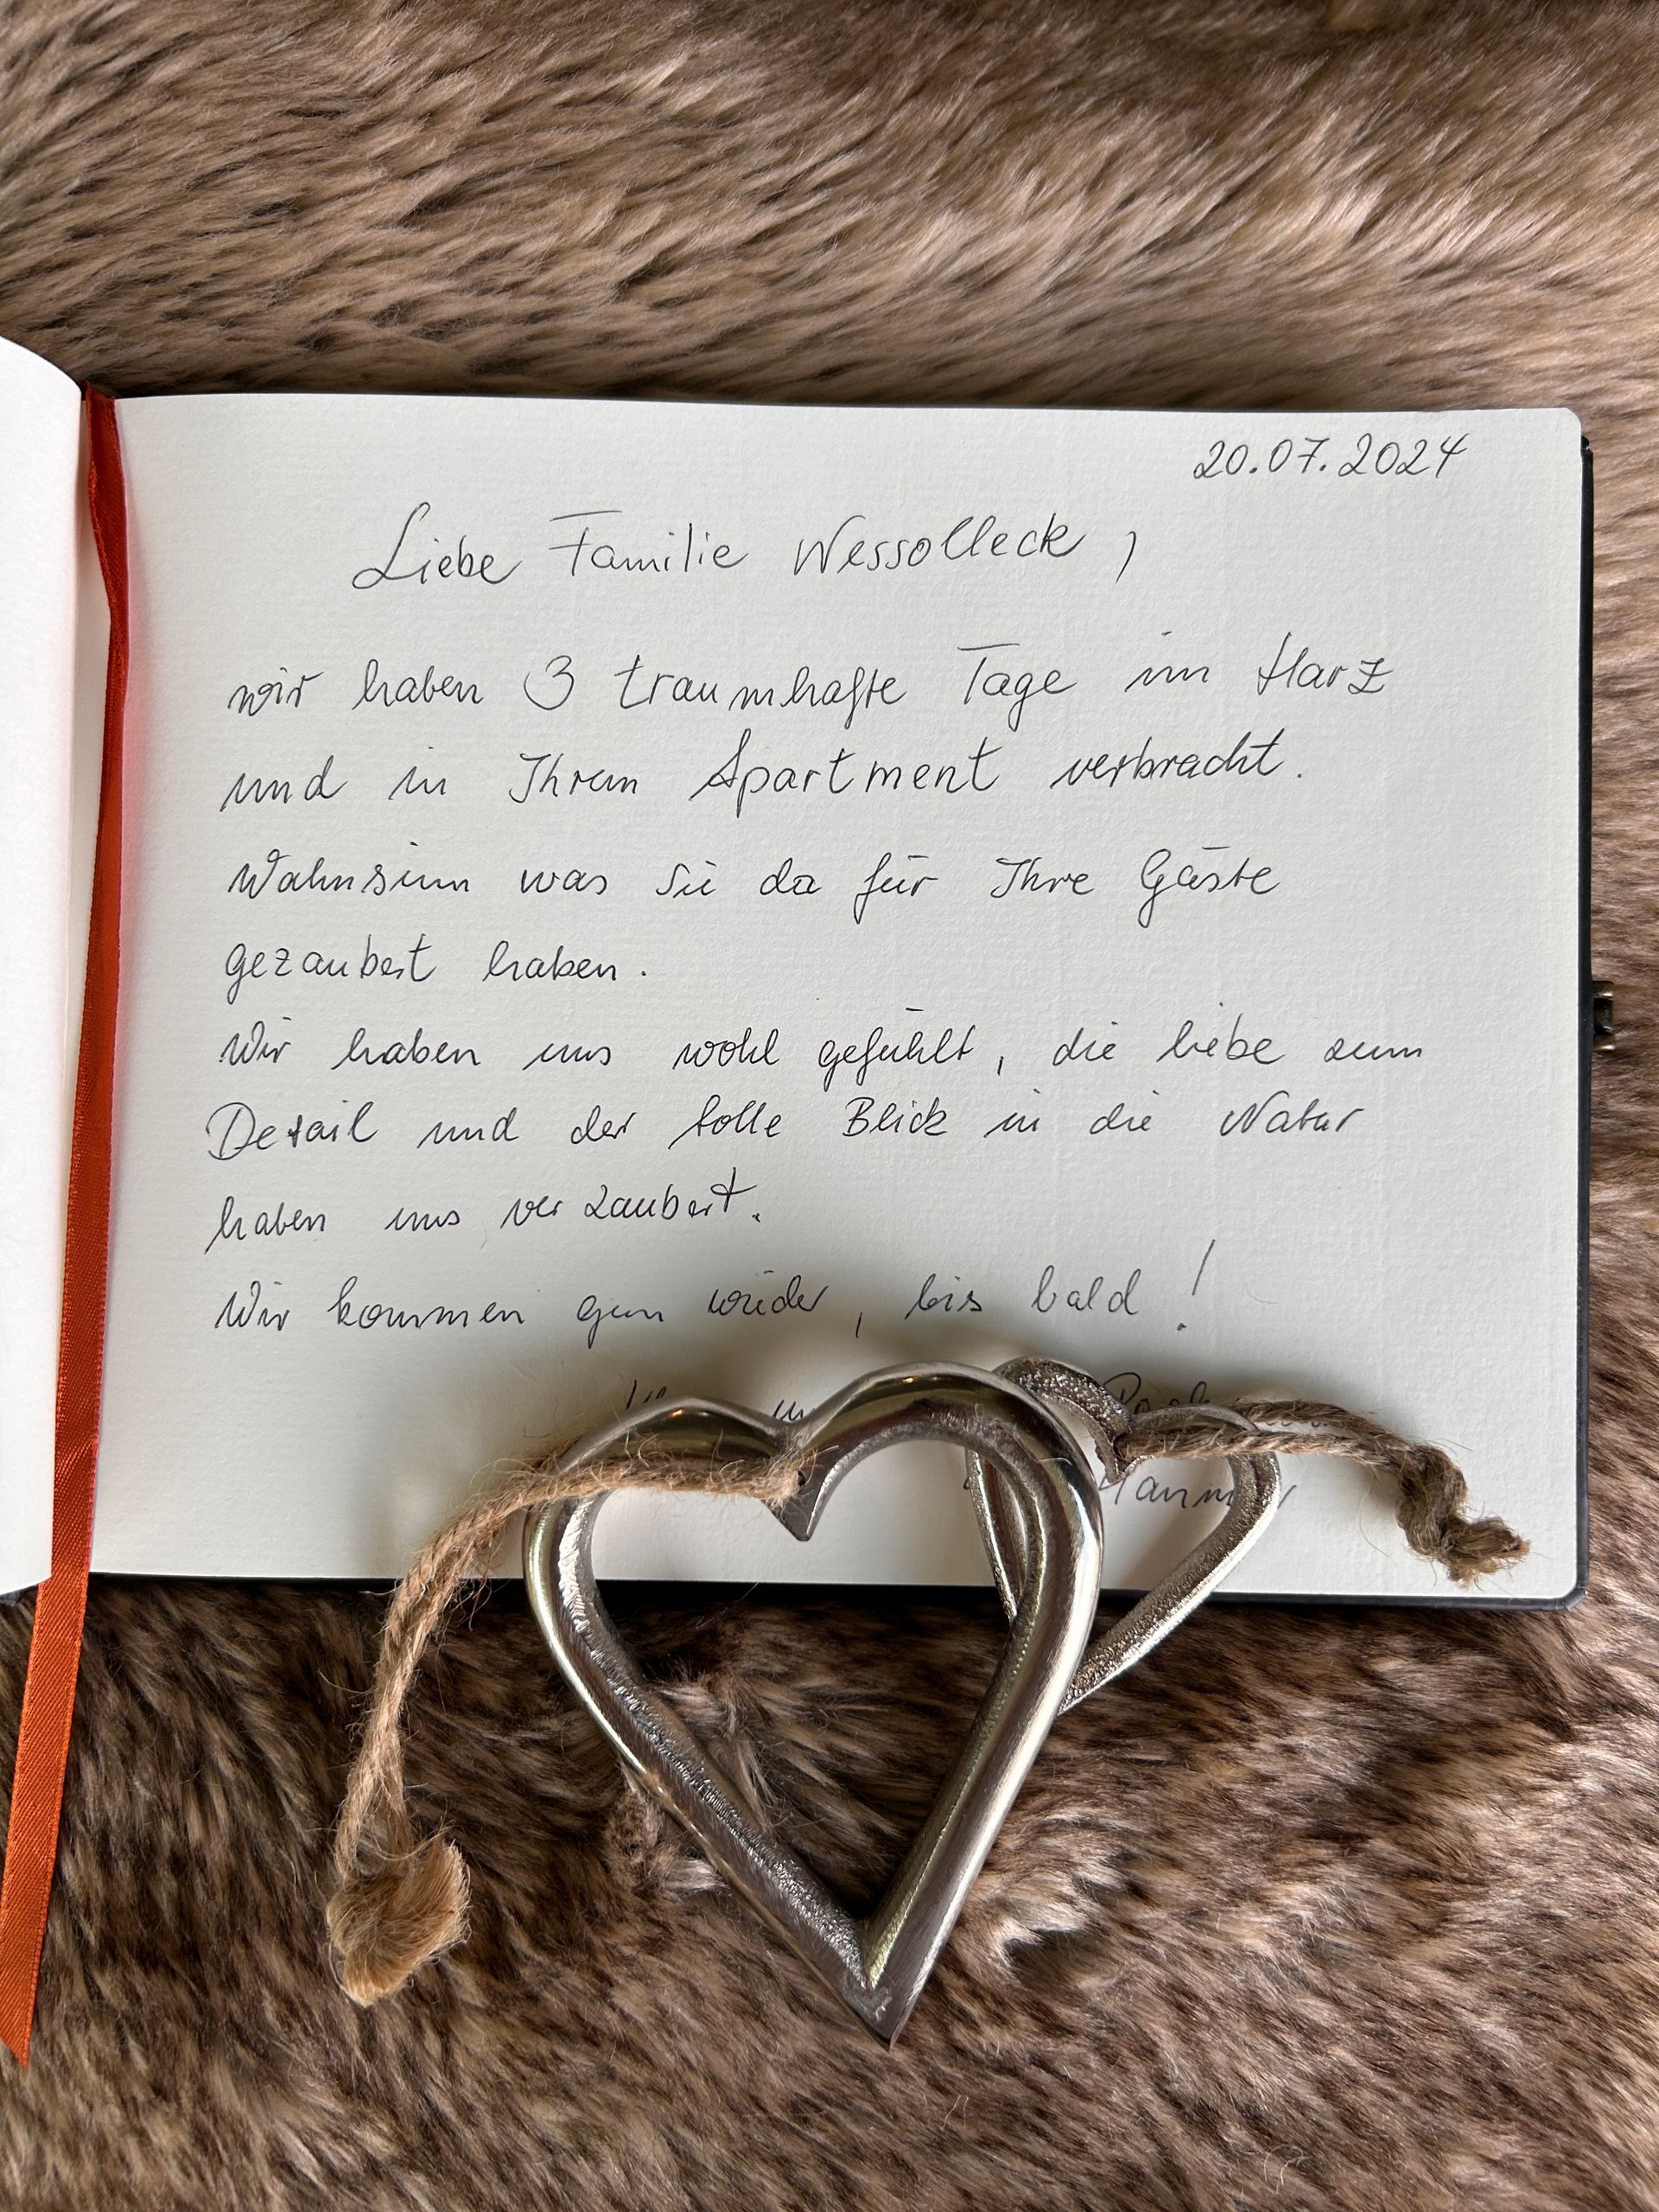 20.07.2024
Liebe Familie Wessolleck,
wir haben 3 traumhafte Tage im Harz
und in Ihrem Apartment verbracht.
Wahnsinn was Sie da für Ihre Gäste
gezaubert haben.
Wir haben uns wohl gefühlt, die liebe zum
Detail und der tolle Blick in die Natur
haben uns verzaubert.
Wir kommen gern wieder, bis bald!